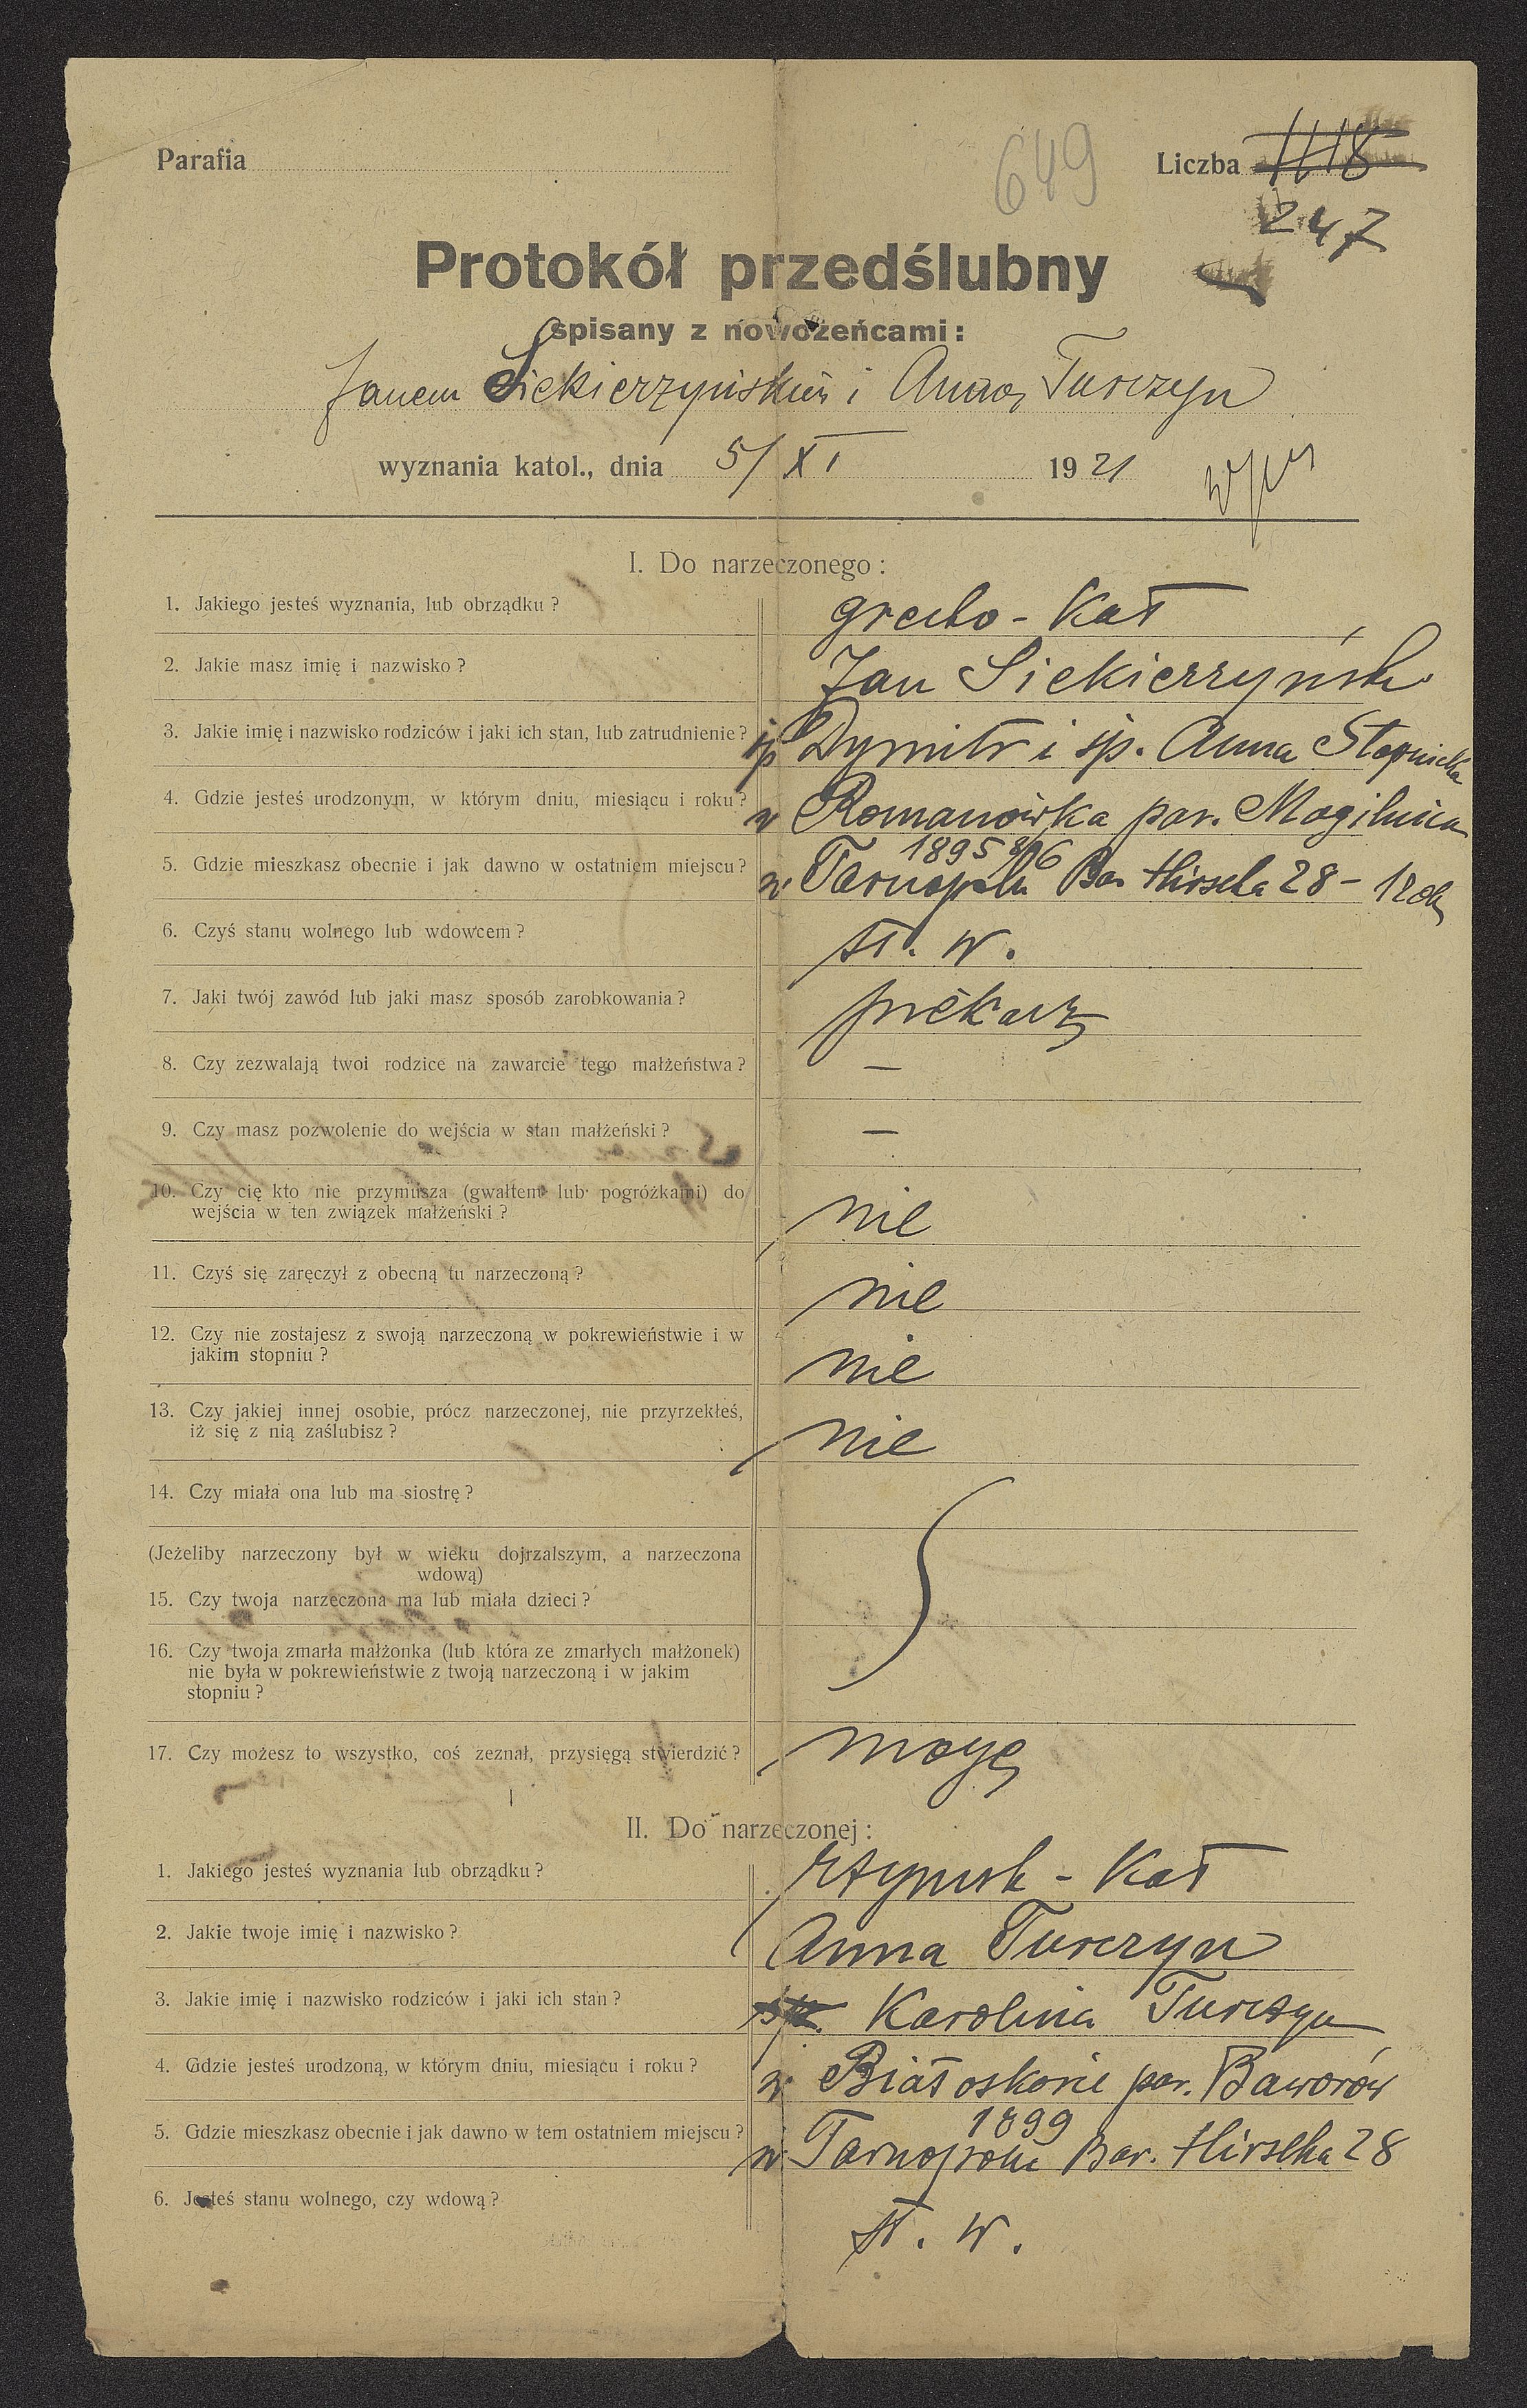 Parafia
649
Liczba 1118
247
Protokół przedślubny
spisany z nowożeńcami:
Janem Siekierzyńskim i Anną Turczyn
wyznania katol., dnia 5/XI 1921
I. Do narzeczonego:
1. Jakiego jesteś wyznania, lub obrządku? grecko-kat
2. Jakie masz imię i nazwisko? Jan Siekierzyński
3. Jakie imię i nazwisko rodziców i jaki ich stan, lub zatrudnienie? śp Dymitr i śp. Anna
4. Gdzie jesteś urodzonym, w którym dniu, miesiącu i roku? w Romanówka par. Mogilnica
1895 8/6
5. Gdzie mieszkasz obecnie i jak dawno w ostatniem miejscu? w Tarnopolu Bar Hirscha 28 -
6. Czyś stanu wolnego lub wdowcem? st. w.
7. Jaki twój zawód lub jaki masz sposób zarobkowania? piekarz
8. Czy zezwalają twoi rodzice na zawarcie tego małżeństwa? –
9. Czy masz pozwolenie do wejścia w stan małżeński? –
10. Czy cię kto nie przymusza (gwałtem lub pogróżkami) do
wejścia w ten związek małżeński? nie
11. Czyś się zaręczył z obecną tu narzeczoną? nie
12. Czy nie zostajesz z swoją narzeczoną w pokrewieństwie i w
jakim stopniu? nie
13. Czy jakiej innej osobie, prócz narzeczonej, nie przyrzekłeś,
iż się z nią zaślubisz? nie
14. Czy miała ona lub ma siostrę?
(Jeżeliby narzeczony był w wieku dojrzalszym, a narzeczona
wdową)
15. Czy twoja narzeczona ma lub miała dzieci?
16. Czy twoja zmarła małżonka (lub która ze zmarłych małżonek)
nie była w pokrewieństwie z twoją narzeczoną i w jakim
stopniu?
17. Czy możesz to wszystko, coś zeznał, przysięgą stwierdzić? mogę
II. Do narzeczonej:
1. Jakiego jesteś wyznania lub obrządku? rzymsk-kat
2. Jakie twoje imię i nazwisko? Anna Turczyn
3. Jakie imię i nazwisko rodziców i jaki ich stan? śp. Karolina Turczyn
4. Gdzie jesteś urodzoną, w którym dniu, miesiącu i roku? w Białoskórie par. Baworów
1899
5. Gdzie mieszkasz obecnie i jak dawno w tem ostatniem miejscu? w Tarnopolu Bar. Hirscha 28
6. Jesteś stanu wolnego, czy wdową? st. w.